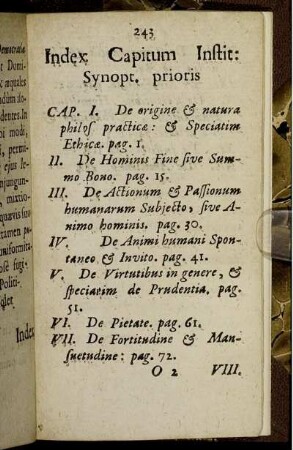 Democratia
243
Index Capitum Instit:
Synopt. prioris
CAP. I. De origine & natura
philos practicæ: & Speciatim
Ethicæ. pag. 1.
II. De Hominis Fine sive Sum-
mo Bono. pag. 15.
III. De Actionum & Passionum
humanarum Subjecto, sive A-
nimo hominis. pag. 30.
IV. De Animi humani Spon-
taneo & Invito. pag. 41.
V. De Virtutibus in genere, &
speciatim de Prudentia. pag.
51.
VI. De Pietate. pag. 61.
VII. De Fortitudine & Man-
suetudine: pag. 72.
O 2 VIII.
Index